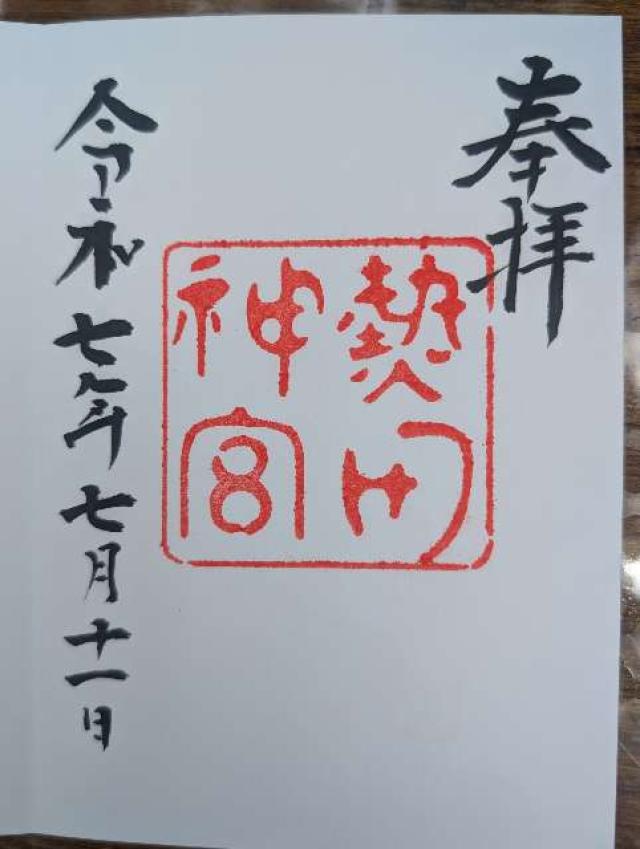 奉拝
熱田
神宮
令和七年七月十一日